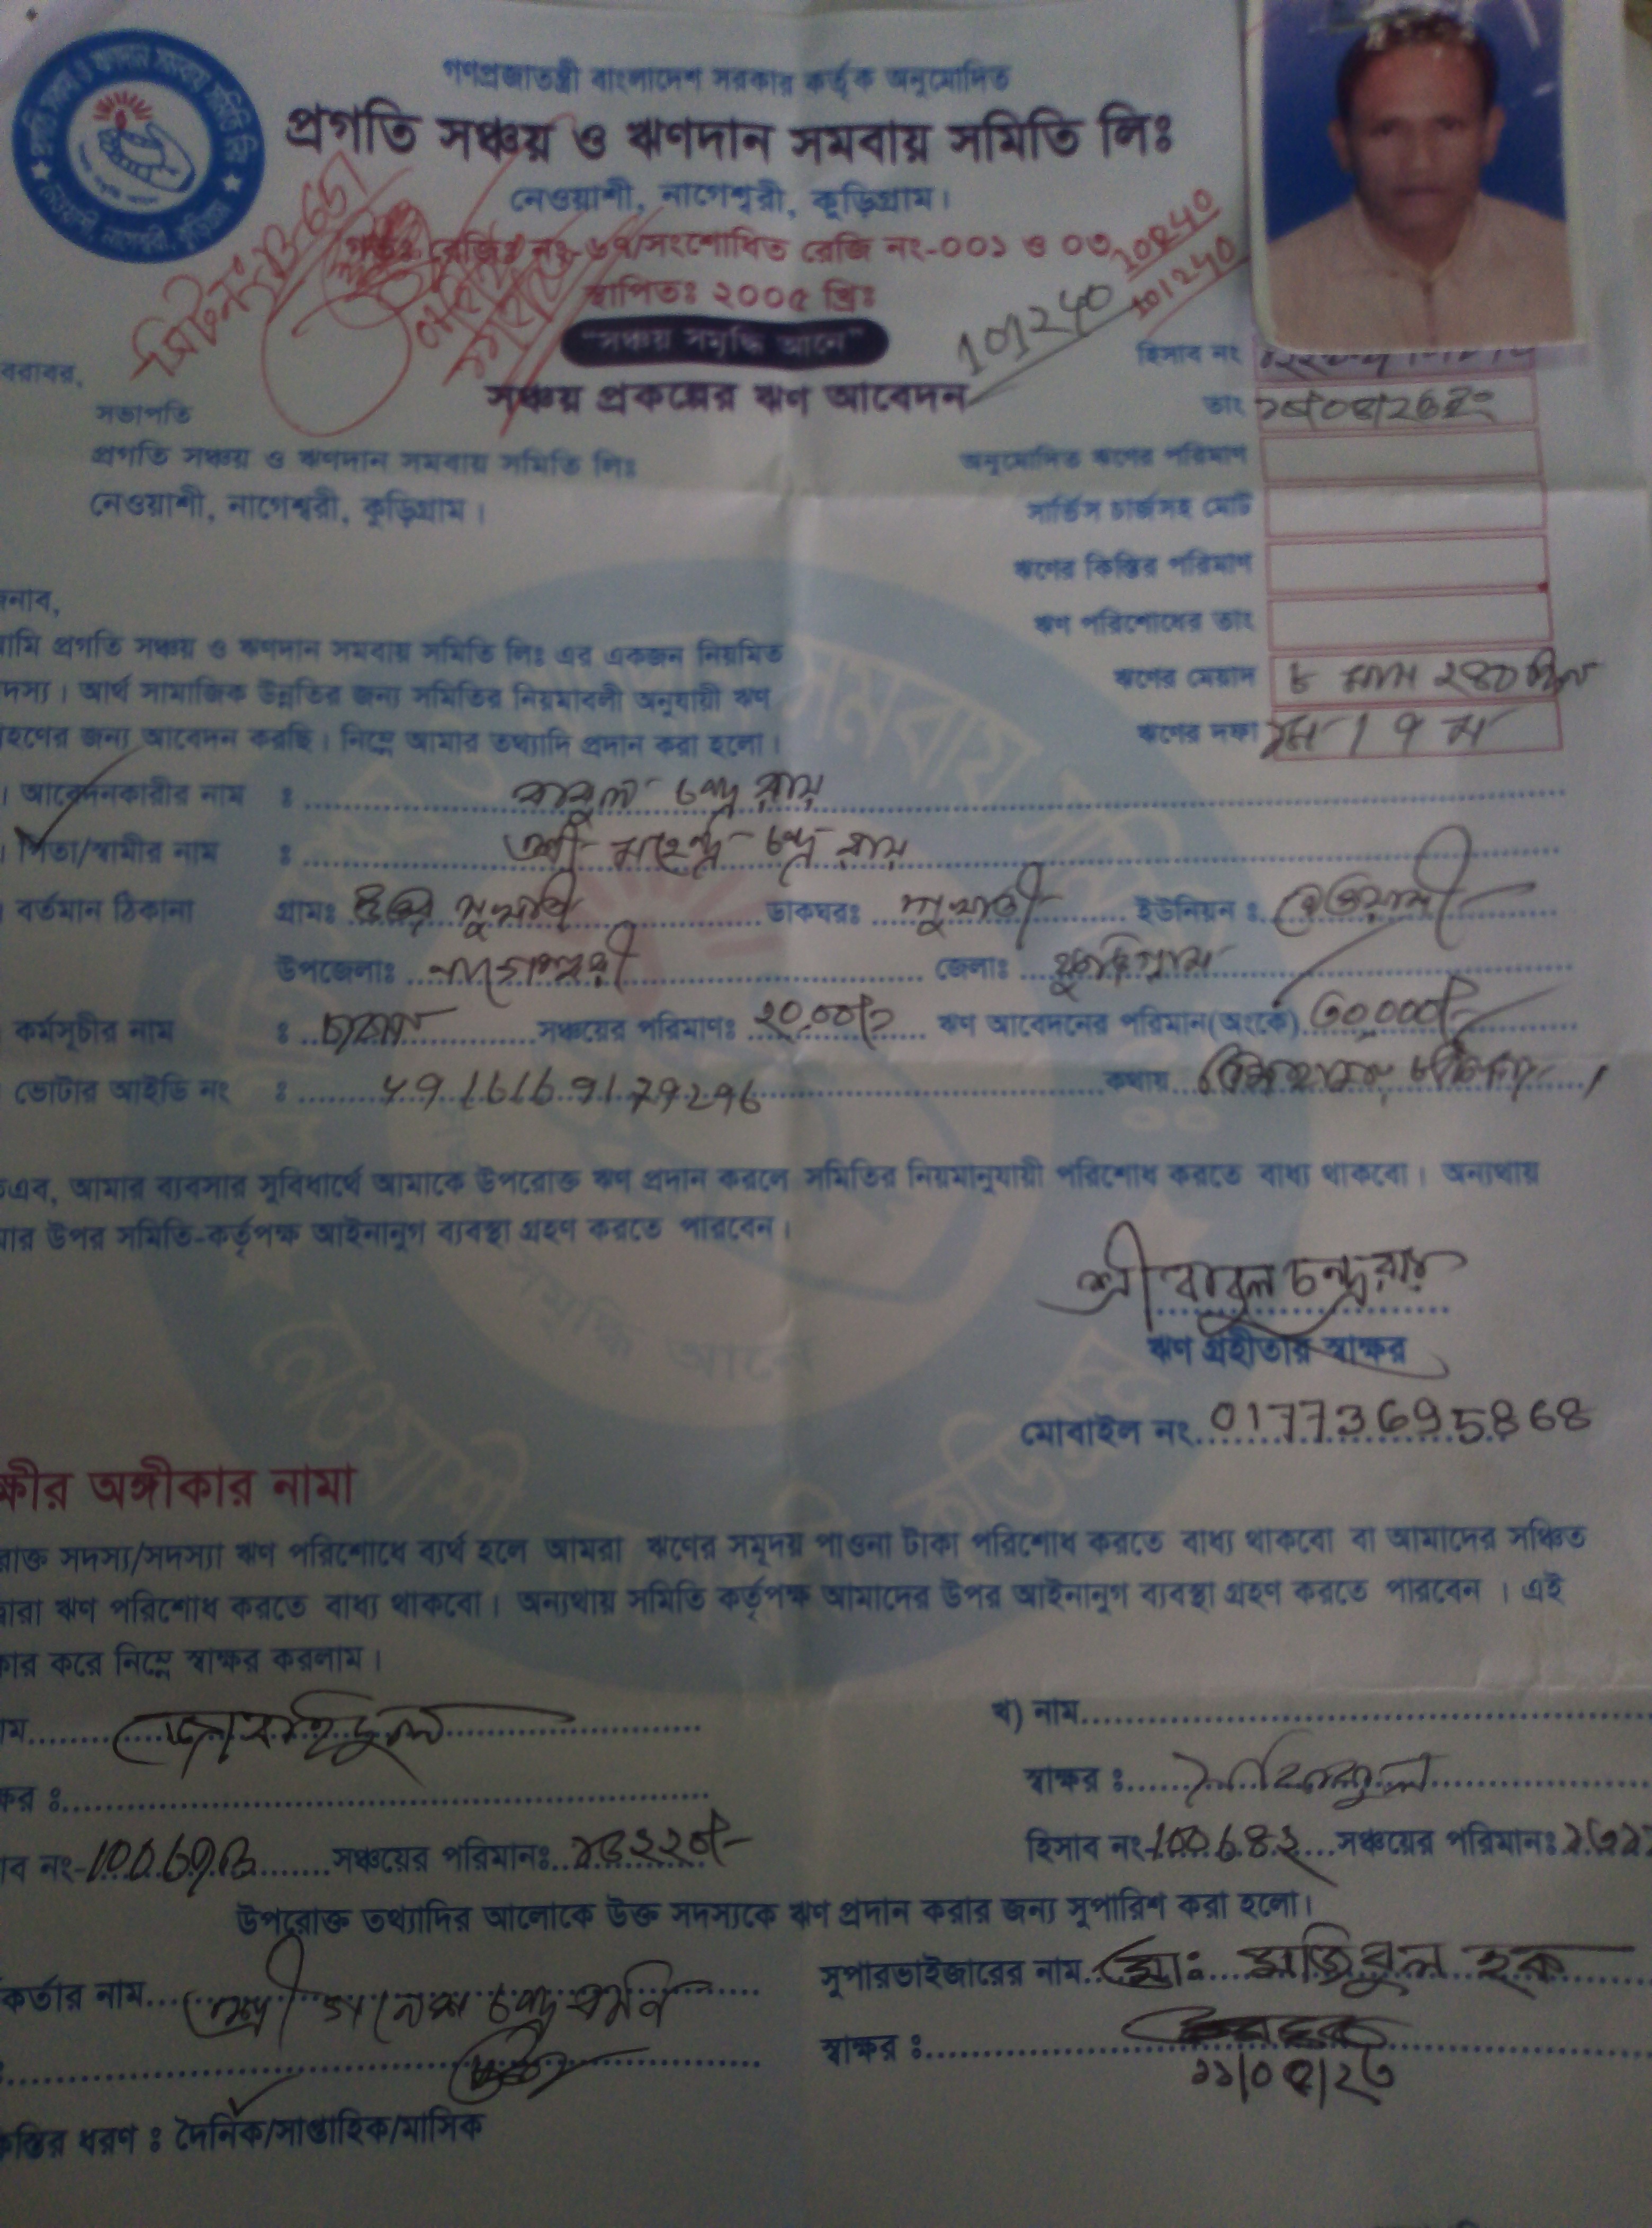 গণপ্রজাতন্ত্রী বাংলাদেশ সরকার কর্তৃক অনুমোদিত
প্রগতি সঞ্চয় ও ঋণদান সমবায় সমিতি লিঃ
নেওয়াশী, নাগেশ্বরী, কুড়িগ্রাম।
রেজিঃ নং-৬৭/সংশোধিত রেজি নং-০০১ ও ০৩
স্থাপিতঃ ২০০৫ খ্রিঃ
101240
101240
"সঞ্চয় সমৃদ্ধি আনে"
সঞ্চয় প্রকল্পের ঋণ আবেদন
হিসাব নং
তাং
বরাবর,
সভাপতি
প্রগতি সঞ্চয় ও ঋণদান সমবায় সমিতি লিঃ
নেওয়াশী, নাগেশ্বরী, কুড়িগ্রাম।
অনুমোদিত ঋণের পরিমাণ
সার্ভিস চার্জসহ মোট
ঋণের কিস্তির পরিমাণ
ঋণ পরিশোধের তাং
ঋণের মেয়াদ ৮ মাস ২৪০ দিন
ঋণের দফা
নাব,
ামি প্রগতি সঞ্চয় ও ঋণদান সমবায় সমিতি লিঃ এর একজন নিয়মিত
দস্য। আর্থ সামাজিক উন্নতির জন্য সমিতির নিয়মাবলী অনুযায়ী ঋণ
হণের জন্য আবেদন করছি। নিম্নে আমার তথ্যাদি প্রদান করা হলো।
। আবেদনকারীর নাম : বাবুল চন্দ্র রায়
। পিতা/স্বামীর নাম : মহেন্দ্র চন্দ্র রায়
বর্তমান ঠিকানা গ্রামঃ উত্তর সুখাতী ডাকঘরঃ সুখাতী ইউনিয়ন : নেওয়াশী
উপজেলাঃ নাগেশ্বরী জেলাঃ কুড়িগ্রাম
কর্মসূচীর নাম : সঞ্চয়ের পরিমাণঃ ২০,০০০/- ঋণ আবেদনের পরিমান(অংকে) ৩০,০০০/-
ভোটার আইডি নং : কথায়
তএব, আমার ব্যবসার সুবিধার্থে আমাকে উপরোক্ত ঋণ প্রদান করলে সমিতির নিয়মানুযায়ী পরিশোধ করতে বাধ্য থাকবো। অন্যথায়
মার উপর সমিতি-কর্তৃপক্ষ আইনানুগ ব্যবস্থা গ্রহণ করতে পারবেন।
শ্রী বাবুল চন্দ্র রায়
ঋণ গ্রহীতার স্বাক্ষর
মোবাইল নং 01773695868
ক্ষীর অঙ্গীকার নামা
রোক্ত সদস্য/সদস্যা ঋণ পরিশোধে ব্যর্থ হলে আমরা ঋণের সমূদয় পাওনা টাকা পরিশোধ করতে বাধ্য থাকবো বা আমাদের সঞ্চিত
দ্বারা ঋণ পরিশোধ করতে বাধ্য থাকবো। অন্যথায় সমিতি কর্তৃপক্ষ আমাদের উপর আইনানুগ ব্যবস্থা গ্রহণ করতে পারবেন। এই
কার করে নিম্নে স্বাক্ষর করলাম।
াম
খ) নাম
ক্ষর :
স্বাক্ষর :
াব নং- সঞ্চয়ের পরিমানঃ
হিসাব নং- সঞ্চয়ের পরিমানঃ
উপরোক্ত তথ্যাদির আলোকে উক্ত সদস্যকে ঋণ প্রদান করার জন্য সুপারিশ করা হলো।
কর্তার নাম শ্রী গনেশ চন্দ্র বর্মন
সুপারভাইজারের নাম মোঃ মজিবুল হক
স্বাক্ষর :
কিস্তির ধরণ : দৈনিক/সাপ্তাহিক/মাসিক